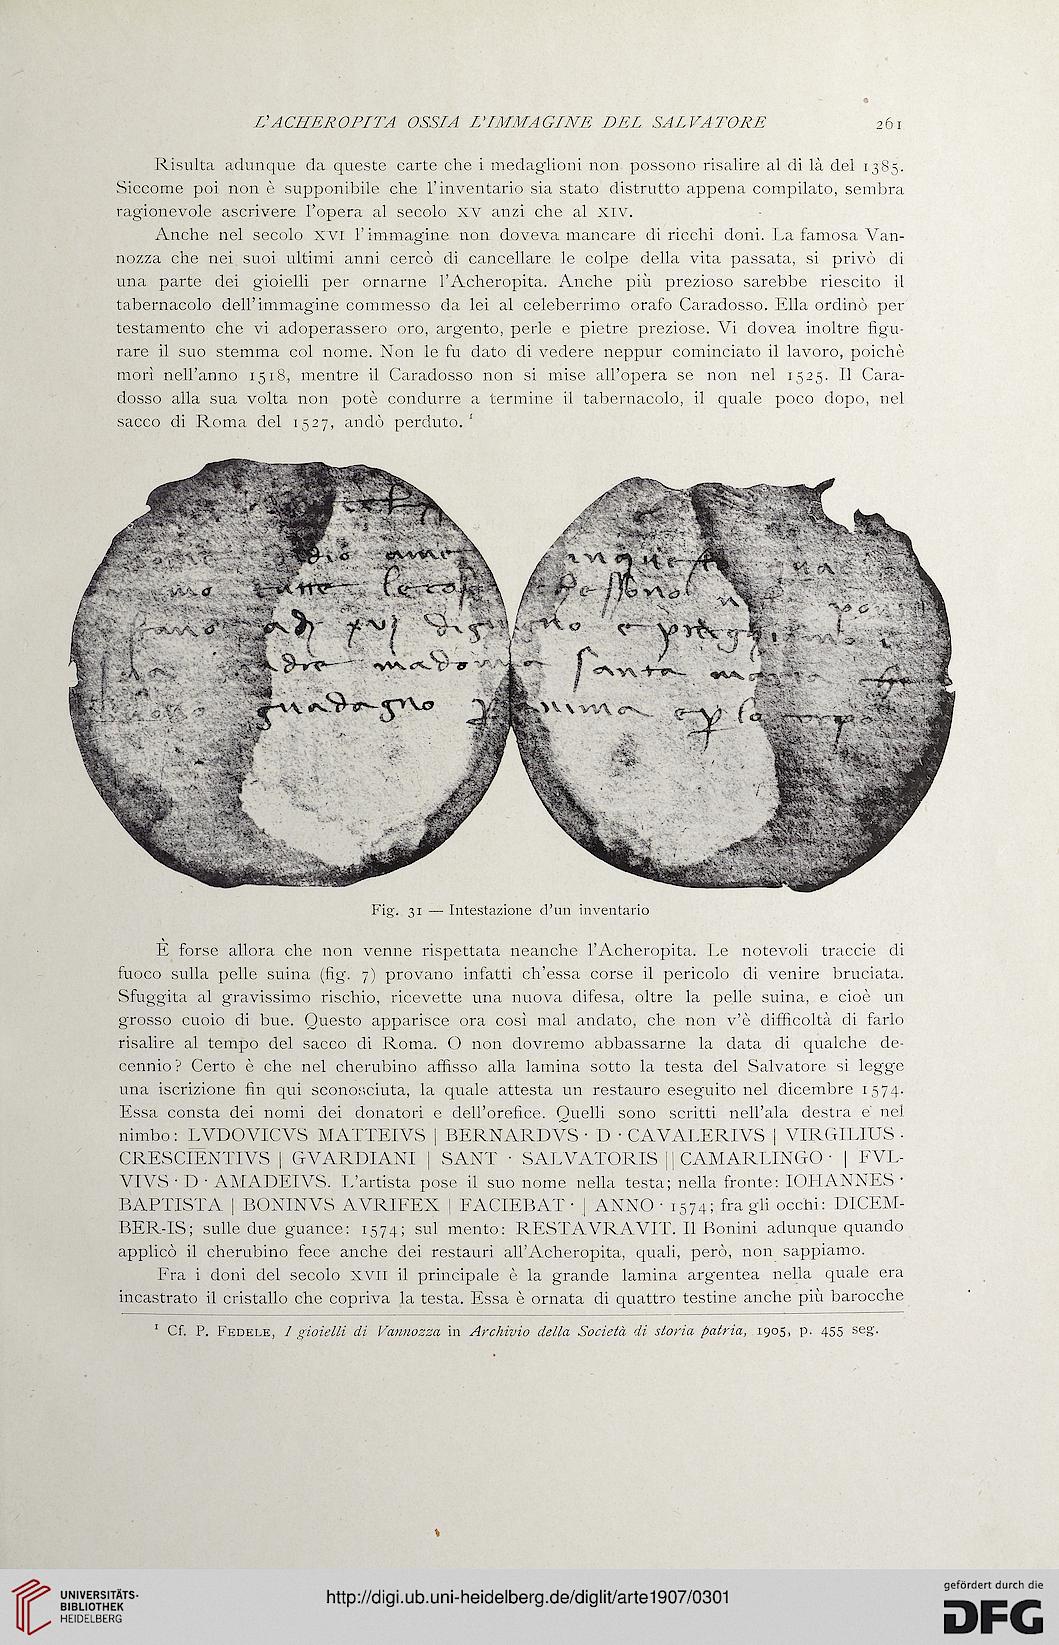 L'ACHEROPITA OSSIA L'IMMAGINE DEL SALVATORE 261
Risulta adunque da queste carte che i medaglioni non possono risalire al di là del 1385.
Siccome poi non è supponibile che l'inventario sia stato distrutto appena compilato, sembra
ragionevole ascrivere l'opera al secolo XV anzi che al XIV.
Anche nel secolo XVI l'immagine non doveva mancare di ricchi doni. La famosa Van-
nozza che nei suoi ultimi anni cercò di cancellare le colpe della vita passata, si privò di
una parte dei gioielli per ornarne l'Acheropita. Anche più prezioso sarebbe riescito il
tabernacolo dell'immagine commesso da lei al celeberrimo orafo Caradosso. Ella ordinò per
testamento che vi adoperassero oro, argento, perle e pietre preziose. Vi dovea inoltre figu-
rare il suo stemma col nome. Non le fu dato di vedere neppur cominciato il lavoro, poichè
morì nell'anno 1518, mentre il Caradosso non si mise all'opera se non nel 1525. Il Cara-
dosso alla sua volta non potè condurre a termine il tabernacolo, il quale poco dopo, nel
sacco di Roma del 1527, andò perduto.¹
dio ame inquesto
tutte le cos che ssono
adi xvj
madonna santa maria
guadagno anima e p lo corpo
Fig. 31 — Intestazione d'un inventario
È forse allora che non venne rispettata neanche l'Acheropita. Le notevoli traccie di
fuoco sulla pelle suina (fig. 7) provano infatti ch'essa corse il pericolo di venire bruciata.
Sfuggita al gravissimo rischio, ricevette una nuova difesa, oltre la pelle suina, e cioè un
grosso cuoio di bue. Questo apparisce ora così mal andato, che non v'è difficoltà di farlo
risalire al tempo del sacco di Roma. O non dovremo abbassarne la data di qualche de-
cennio? Certo è che nel cherubino affisso alla lamina sotto la testa del Salvatore si legge
una iscrizione fin qui sconosciuta, la quale attesta un restauro eseguito nel dicembre 1574.
Essa consta dei nomi dei donatori e dell'orefice. Quelli sono scritti nell'ala destra e nel
nimbo: LVDOVICVS MATTEIVS | BERNARDVS · D · CAVALERIVS | VIRGILIUS ·
CRESCIENTIVS | GVARDIANI | SANT · SALVATORIS || CAMARLINGO · | FVL-
VIVS · D · AMADEIVS. L'artista pose il suo nome nella testa; nella fronte: IOHANNES ·
BAPTISTA | BONINVS AVRIFEX | FACIEBAT · | ANNO · 1574; fra gli occhi: DICEM-
BER-IS; sulle due guance: 1574; sul mento: RESTAVRAVIT. Il Bonini adunque quando
applicò il cherubino fece anche dei restauri all'Acheropita, quali, però, non sappiamo.
Fra i doni del secolo XVII il principale è la grande lamina argentea nella quale era
incastrato il cristallo che copriva la testa. Essa è ornata di quattro testine anche più barocche
¹ Cf. P. FEDELE, I gioielli di Vannozza in Archivio della Società di storia patria, 1905, p. 455 seg.
UNIVERSITÄTS-
BIBLIOTHEK
HEIDELBERG
http://digi.ub.uni-heidelberg.de/diglit/arte1907/0301
gefördert durch die
DFG